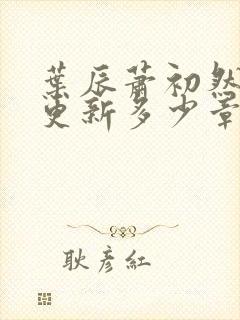 葉辰蕭初然
更新多少章
耿彦紅